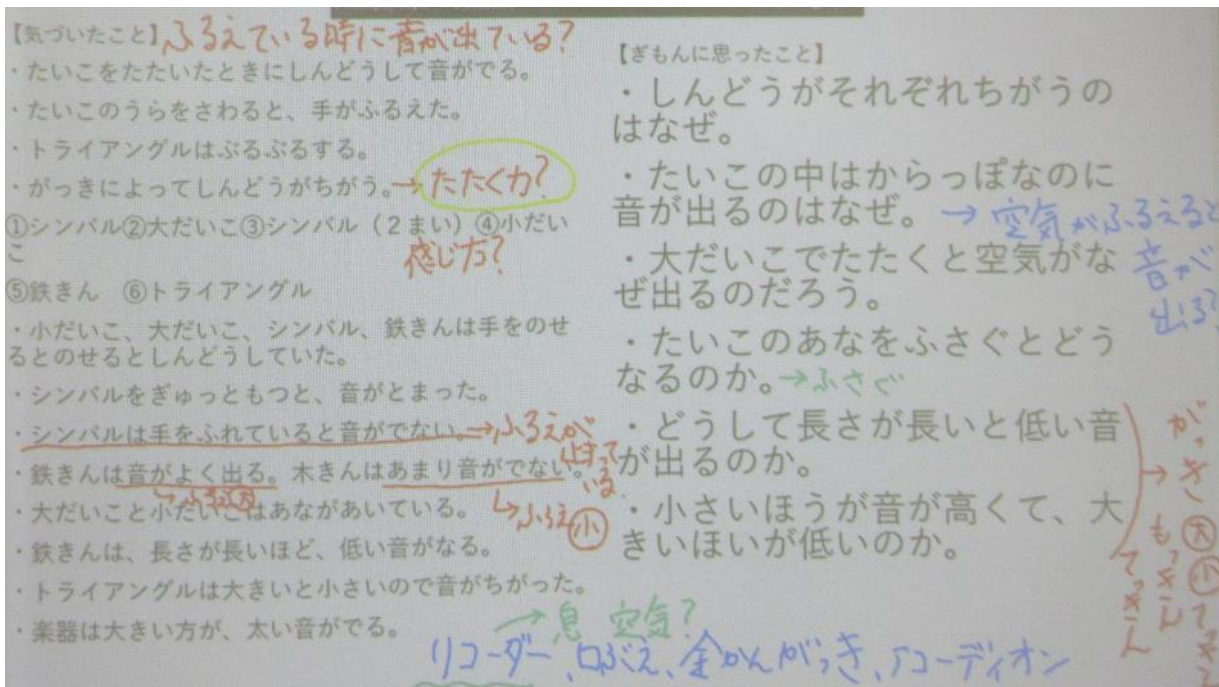 【気づいたこと】ふるえている時に音が出ている？
・たいこをたたいたときにしんどうして音がでる。
・たいこのうらをさわると、手がふるえた。
・トライアングルはぶるぶるする。
・がっきによってしんどうがちがう。→たたく力？
①シンバル②大だいこ③シンバル（２まい）④小だい
こ
感じ方？
⑤鉄きん　⑥トライアングル
・小だいこ、大だいこ、シンバル、鉄きんは手をのせ
るとのせるとしんどうしていた。
・シンバルをぎゅっともつと、音がとまった。
・シンバルは手をふれていると音がでない。→ふるえが
止まって
いる
・鉄きんは音がよく出る。木きんはあまり音がでない。
ふるえ大
・大だいこと小だいこはあながあいている。
ふるえ小
・鉄きんは、長さが長いほど、低い音がなる。
・トライアングルは大きいと小さいので音がちがった。
・楽器は大きい方が、太い音がでる。
→息　空気？
リコーダー、口ぶえ、金かんがっき、アコーディオン
【ぎもんに思ったこと】
・しんどうがそれぞれちがうの
はなぜ。
・たいこの中はからっぽなのに
音が出るのはなぜ。→空気がふるえると
音が
出る？
・大だいこでたたくと空気がな
ぜ出るのだろう。
・たいこのあなをふさぐとどう
なるのか。→ふさぐ
・どうして長さが長いと低い音
が出るのか。
・小さいほうが音が高くて、大
きいほいが低いのか。
→がっき大小
もっきん
てっきん